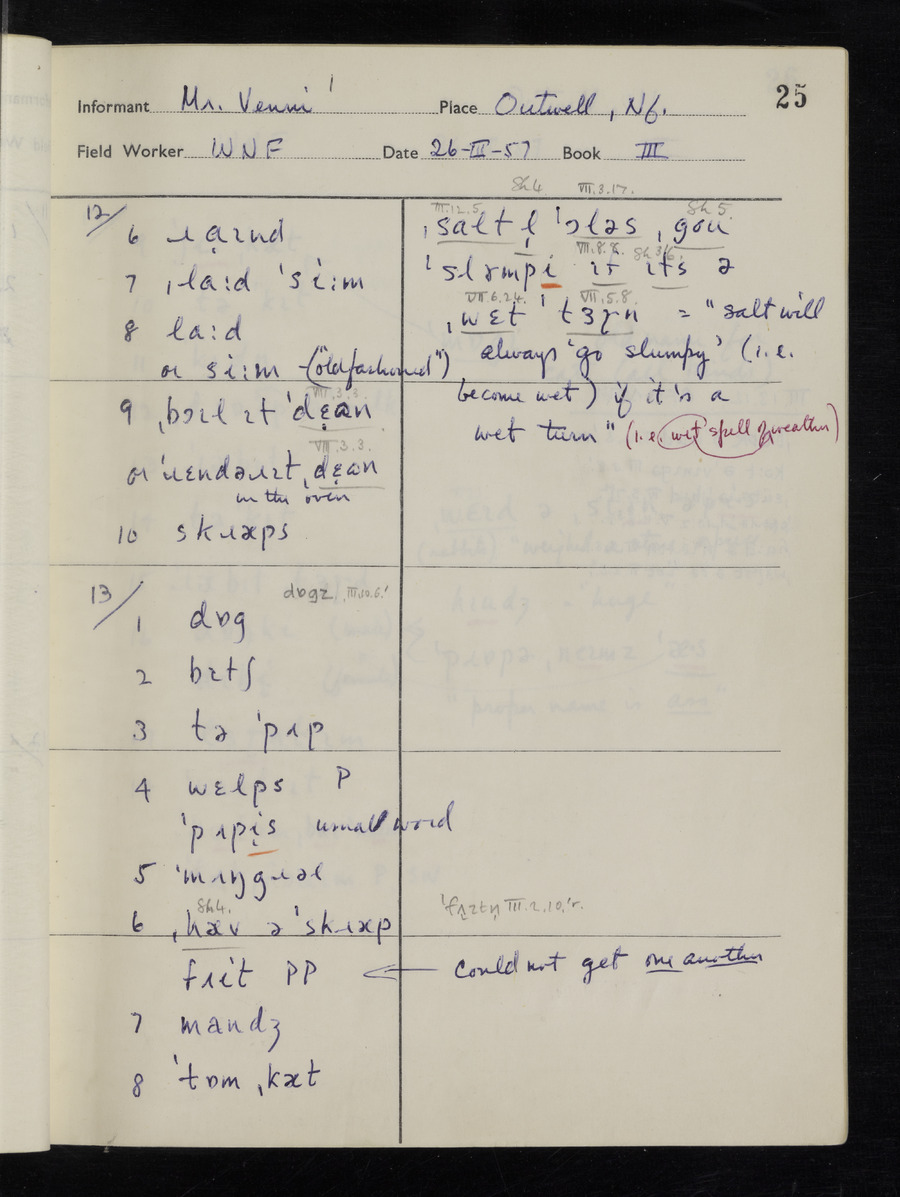 25
Informant Mr. Venni Place Outwell, Nf.
Field Worker WNF Date 26-III-57 Book III
Sh4 VII.3.17.
12/
6
7 ˌlaːd ˈsiːm
8 laːd
or siːm ("oldfashioned")
VII.3.3.
9 ˌbɔɪl ɪt ˈdɛan
VII.3.3.
in the oven
10 skɹæps
III.12.5. Sh5.
ˌsalt l̩ ˈɔləs ˌgou
VII.8.8. Sh3/6.
ˈslʌmpi ɪf ɪts ə
VII.6.24. VII.5.8.
ˌwɛt ˈtɜɲn = "salt will
always 'go slumpy' (i.e.
become wet) if it's a
wet turn" (i.e. wet spell of weather)
13/
dɒgz III.10.6.
1 dɒg
2 bɪtʃ
3 tə ˈpʌp
4 wɛlps P
ˈpʌpis usual word
5 ˈmʌŋgɹəl
Sh4.
6 ˌhæv ə ˈskɹæp
III.2.10,r.
fɹit PP ← could not get one another
7 mandʒ
8 ˈtɒm ˌkæt